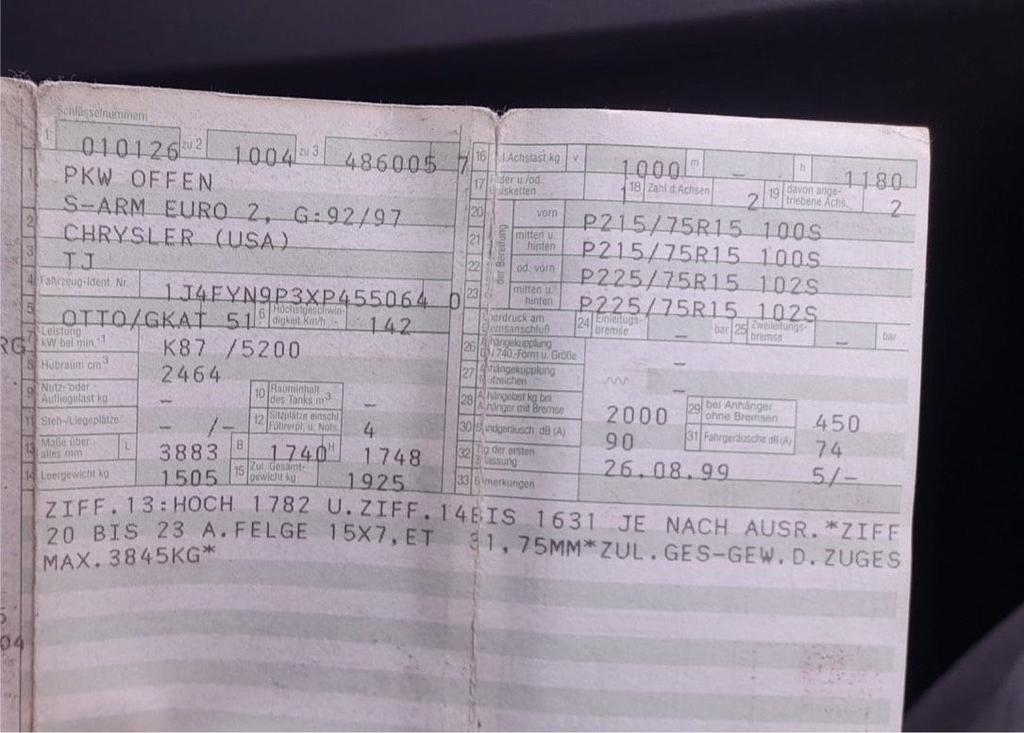 Schlüsselnummern
1 010126 zu 2 1004 zu 3 486005 7
1 PKW OFFEN
S-ARM EURO 2, G:92/97
2 CHRYSLER (USA)
3 TJ
4 Fahrzeug-Ident. Nr. 1J4FYN9P3XP455064 0
5 OTTO/GKAT 51 6 Höchstgeschwin-digkeit km/h 142
7 Leistung kW bei min.-1 K87 /5200
8 Hubraum cm3 2464
9 Nutz- oder Aufliegelast kg – 10 Rauminhalt des Tanks m3 –
11 Steh-/Liegeplätze – /– 12 Sitzplätze einschl. Führerpl. u. Nots. 4
13 Maße über alles mm L 3883 B 1740 H 1748
14 Leergewicht kg 1505 15 Zul. Gesamt-gewicht kg 1925
16 Achslast kg v 1000 m – h 1180
17 18 Zahl d. Achsen 2 19 davon ange-triebene Achs. 2
20 vorn P215/75R15 100S
21 mitten u. hinten P215/75R15 100S
22 od. vorn P225/75R15 102S
23 mitten u. hinten P225/75R15 102S
der Bereifung
24 Einleitungs-bremse – bar 25 Zweileitungs-bremse – bar
26 –
27 –
28 2000 29 bei Anhänger ohne Bremsen 450
30 90 31 Fahrgeräusche dB (A) 74
32 26.08.99 5/–
33
ZIFF.13:HOCH 1782 U.ZIFF.14BIS 1631 JE NACH AUSR.*ZIFF
20 BIS 23 A.FELGE 15X7,ET 31,75MM*ZUL.GES-GEW.D.ZUGES
MAX.3845KG*